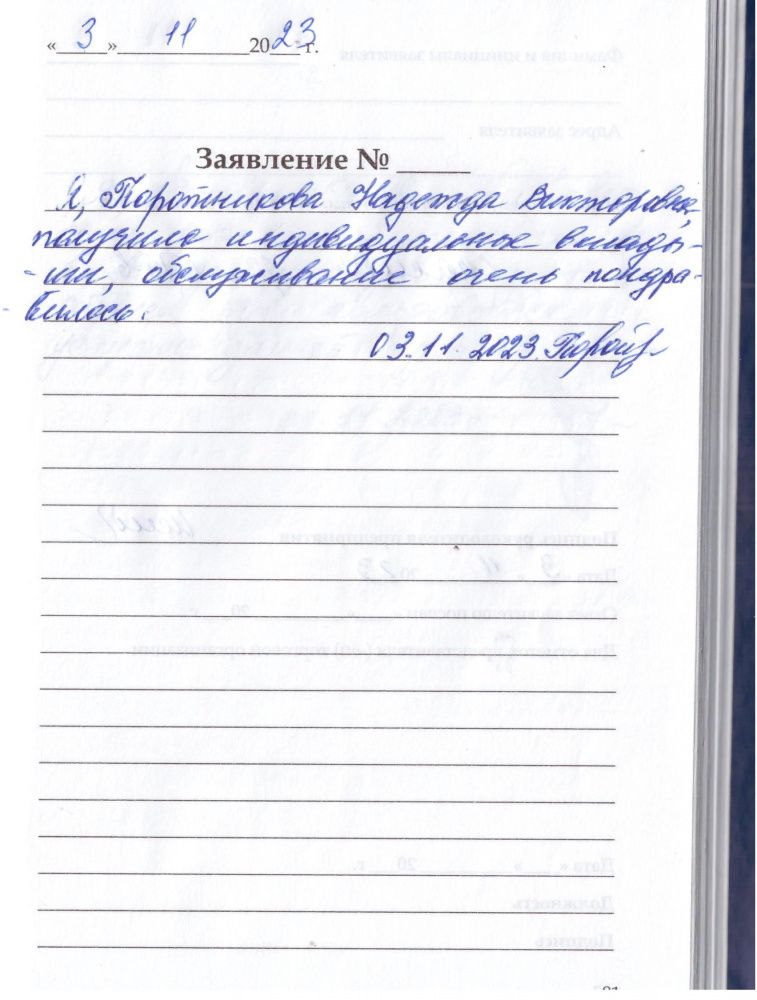 « 3 » 11 2023 г.
Заявление №
Я, Поротникова Надежда Викторовна,
получила индивидуальные вклады-
-ши, обслуживание очень пондра-
вилось.
03.11.2023.